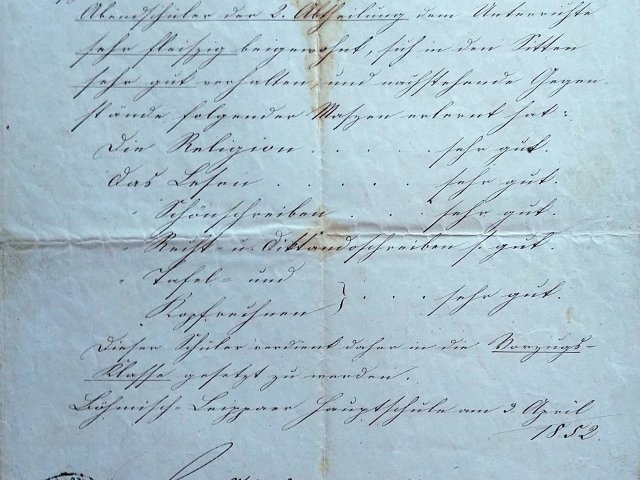 Abendschüler der 2. Abtheilung dem Unterrichte
sehr fleißig beigewohnt, sich in den Sitten
sehr gut verhalten und nachstehende Gegen-
stände folgender Maßen erlernt hat:
Die Religion . . . . . sehr gut.
Das Lesen . . . . . sehr gut.
Schönschreiben . . . sehr gut.
Recht- u. Diktandoschreiben s. gut.
" Tafel- und
Kopfrechnen } . . . sehr gut.
Dieser Schüler verdient daher in die Vorzugs-
Klasse gesetzt zu werden.
Böhmisch-Leippaer Hauptschule am 3. April
1852.